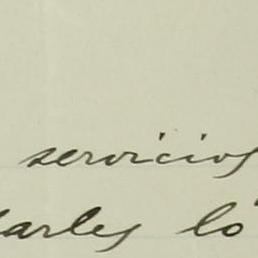 servicios
arles lo